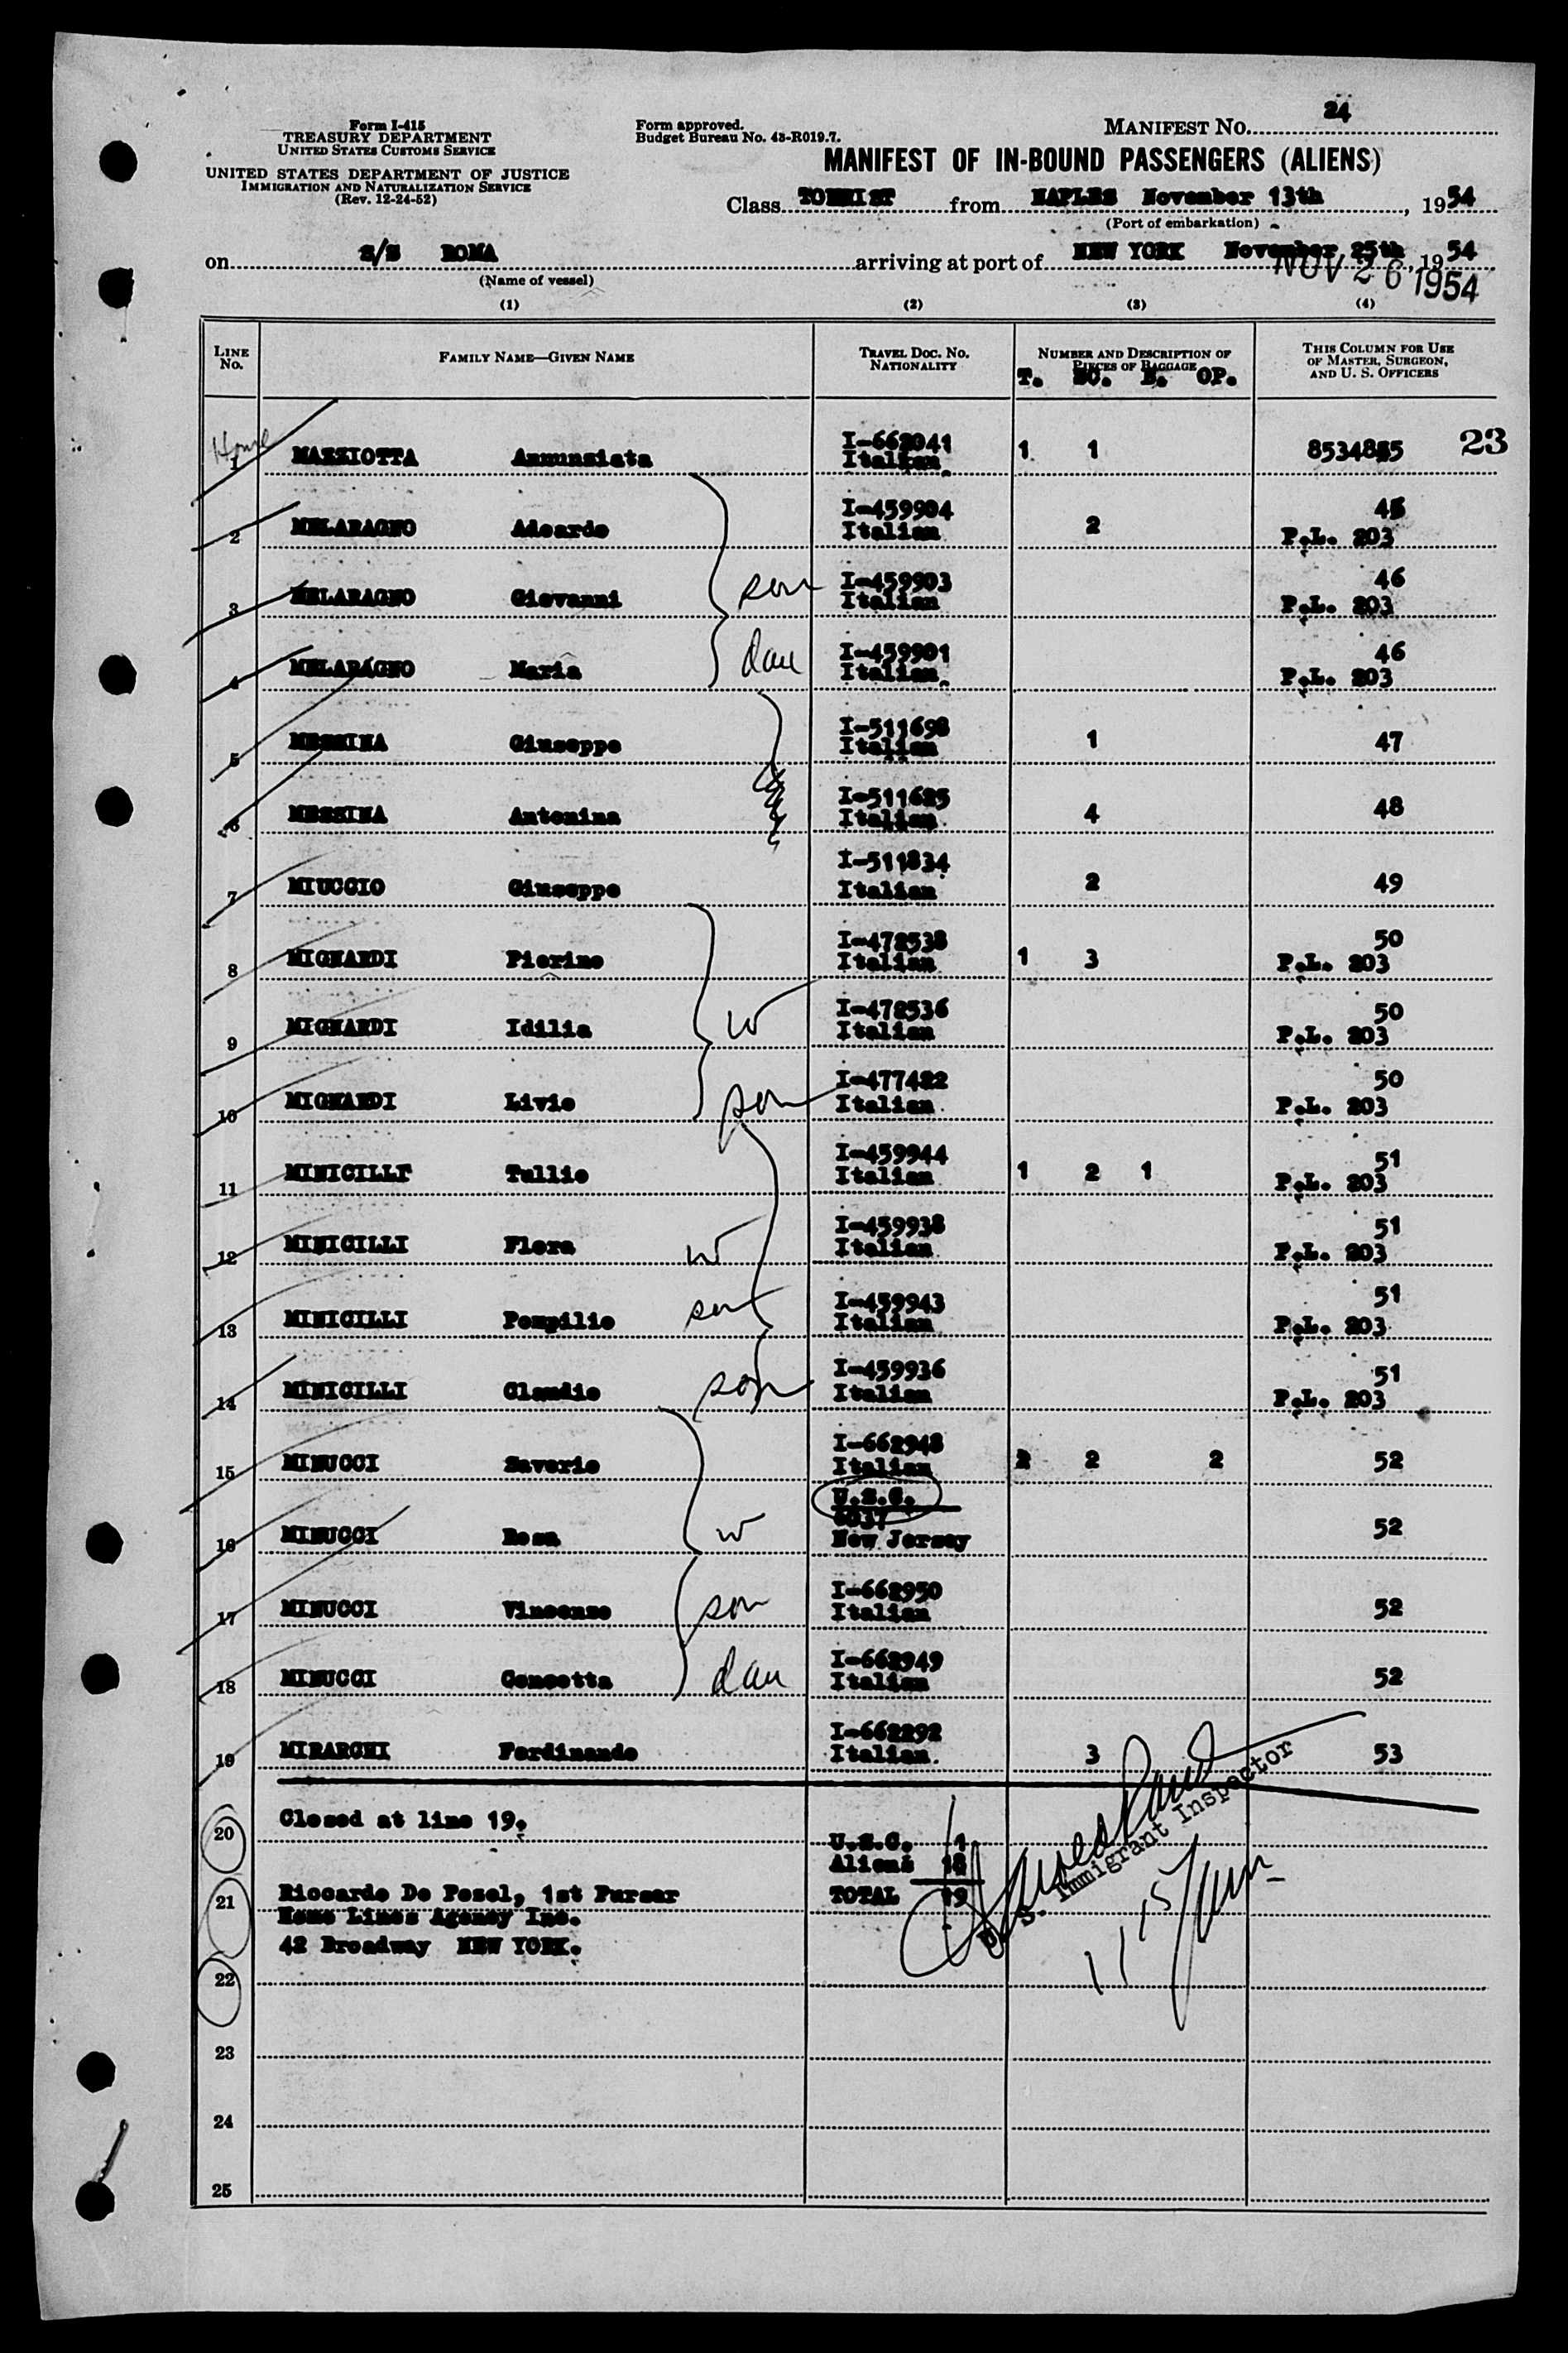 Form I-415
TREASURY DEPARTMENT
UNITED STATES CUSTOMS SERVICE
UNITED STATES DEPARTMENT OF JUSTICE
IMMIGRATION AND NATURALIZATION SERVICE
(Rev. 12-24-52)
Form approved.
Budget Bureau No. 43-R019.7.
MANIFEST NO. 24
MANIFEST OF IN-BOUND PASSENGERS (ALIENS)
Class TOURIST from NAPLES November 13th, 1954
(Port of embarkation)
on S/S ROMA arriving at port of NEW YORK November 25th, 1954
(Name of vessel)
NOV 26 1954
(1) (2) (3) (4)
LINE NO. FAMILY NAME—GIVEN NAME TRAVEL DOC. NO. NATIONALITY NUMBER AND DESCRIPTION OF PIECES OF BAGGAGE THIS COLUMN FOR USE OF MASTER, SURGEON, AND U. S. OFFICERS
T. SC. B. OP.
1 MAZZIOTTA Annunziata I-662041 Italian 1 1 8534845 23
2 MELARAGNO Adeardo I-459904 Italian 2 45 P.L. 203
3 MELARAGNO Giovanni son I-459903 Italian 46 P.L. 203
4 MELARAGNO Maria dau I-459901 Italian 46 P.L. 203
5 MESSINA Giuseppe I-511698 Italian 1 47
6 MESSINA Antonina I-511685 Italian 4 48
7 MIUCCIO Giuseppe I-511834 Italian 2 49
8 MIGNARDI Pierino I-478538 Italian 1 3 50 P.L. 203
9 MIGNARDI Idilia w I-478536 Italian 50 P.L. 203
10 MIGNARDI Livio son I-477482 Italian 50 P.L. 203
11 MINICILLI Tullio I-459944 Italian 1 2 1 51 P.L. 203
12 MINICILLI Flora w I-459938 Italian 51 P.L. 203
13 MINICILLI Pompilio son I-459943 Italian 51 P.L. 203
14 MINICILLI Claudio son I-459936 Italian 51 P.L. 203
15 MINUCCI Saverio I-662948 Italian 2 2 2 52
16 MINUCCI Rosa w U.S.C. 6037 New Jersey 52
17 MINUCCI Vincenzo son I-662950 Italian 52
18 MINUCCI Concetta dau I-662949 Italian 52
19 MIRARCHI Ferdinando I-662292 Italian 3 53
20 Closed at line 19.
U.S.C. 1
Aliens 18
TOTAL 19
U. S. Immigrant Inspector
21 Riccardo De Pesel, 1st Purser
Home Lines Agency Inc.
42 Broadway NEW YORK.
22
23
24
25